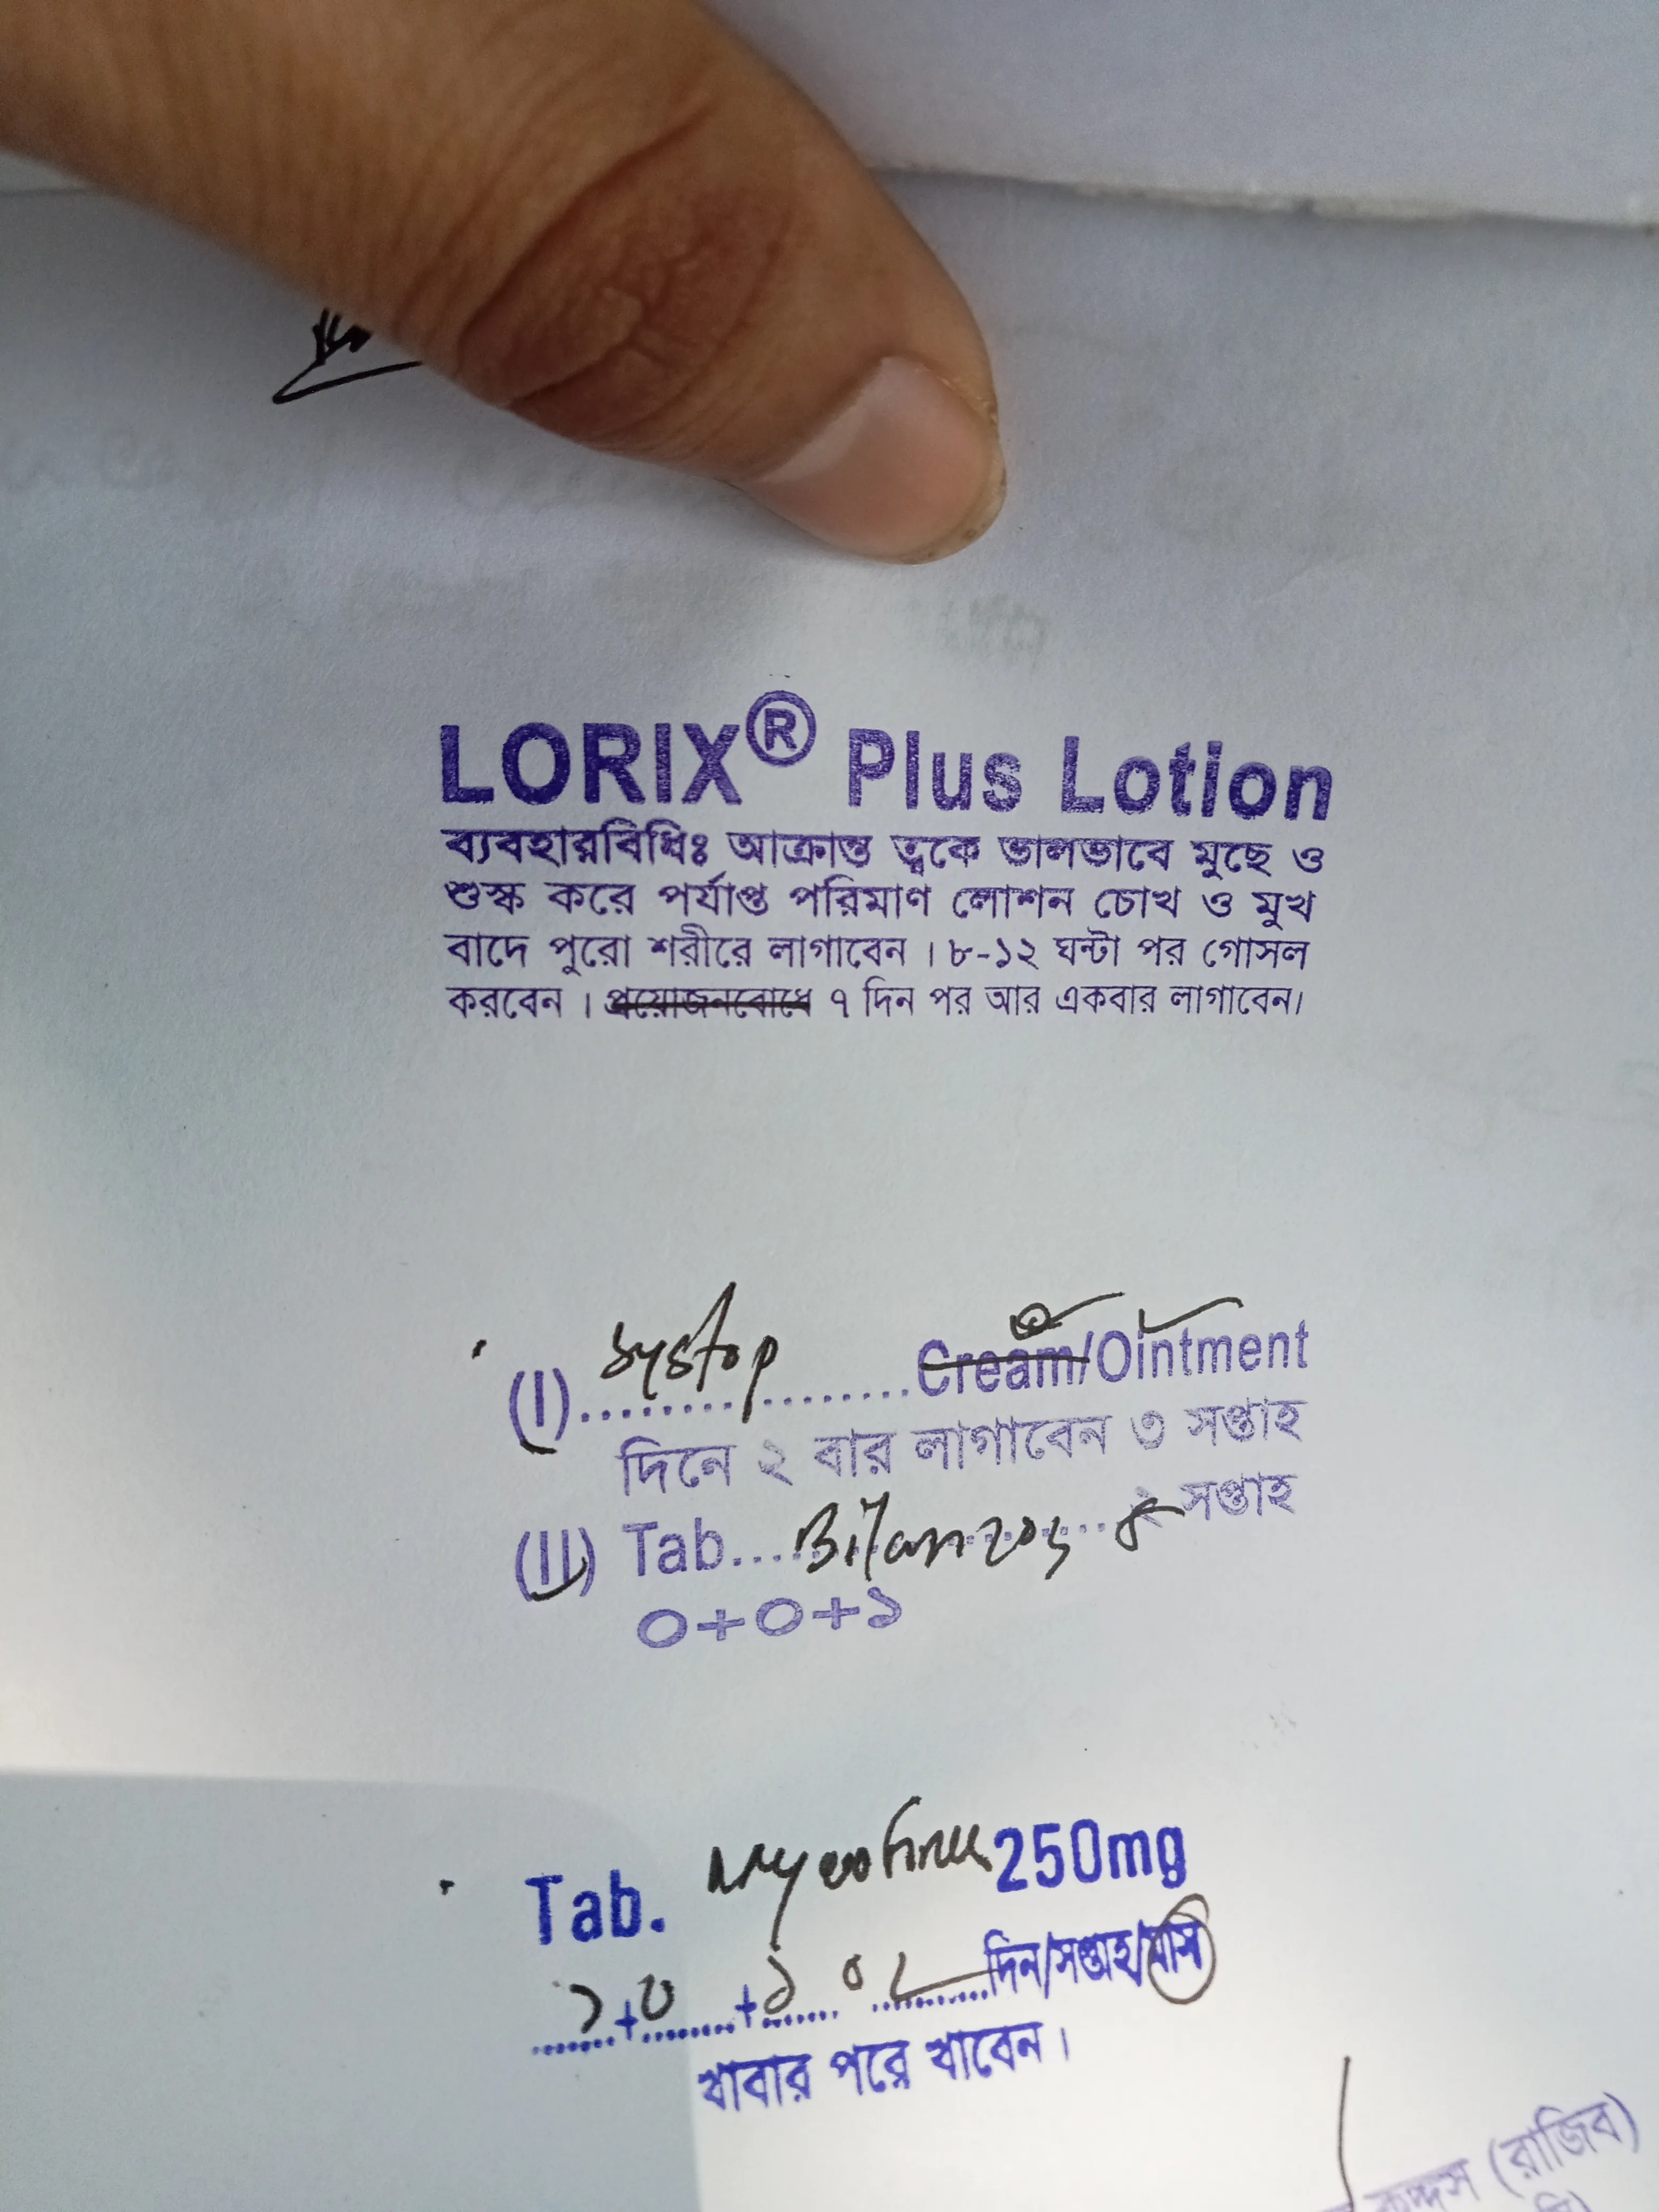 LORIX® Plus Lotion
ব্যবহারবিধিঃ আক্রান্ত ত্বকে ভালভাবে মুছে ও
শুস্ক করে পর্যাপ্ত পরিমাণ লোশন চোখ ও মুখ
বাদে পুরো শরীরে লাগাবেন। ৮-১২ ঘন্টা পর গোসল
করবেন। প্রয়োজনবোধে ৭ দিন পর আর একবার লাগাবেন।
(I) ........ Cream/Ointment
দিনে ২ বার লাগাবেন ৩ সপ্তাহ
(II) Tab... সপ্তাহ
০+০+১
Tab. 250mg
১+০+১ দিন/সপ্তাহ/মাস
খাবার পরে খাবেন।
(রাজিব)